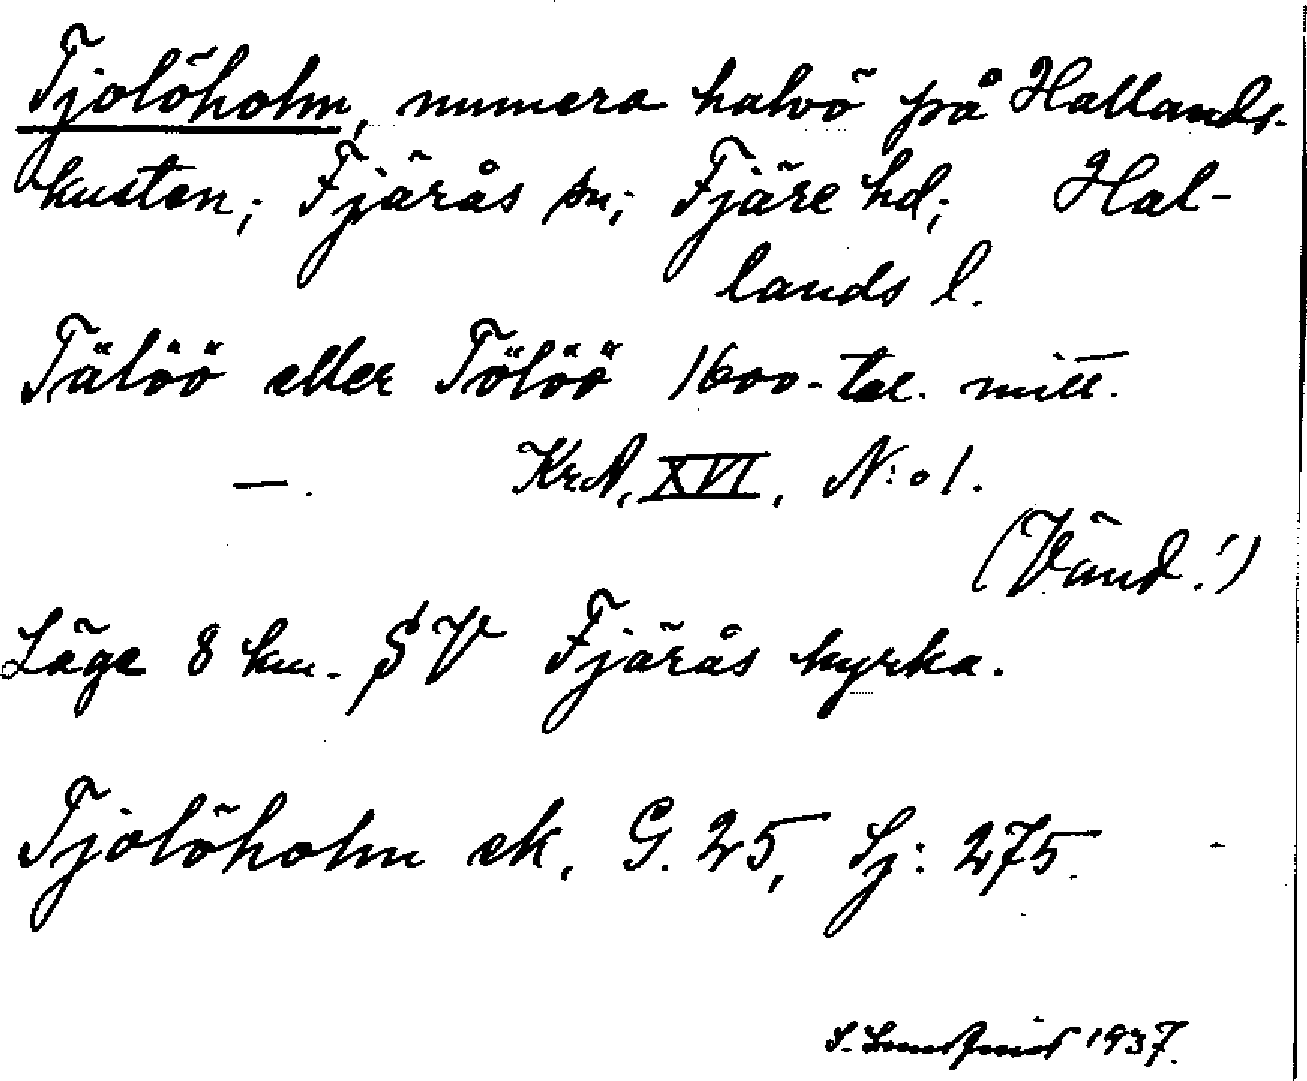 Tjolöholm, numera halvö på Hallands-
kusten; Fjärås sn; Fjäre hd; Hal-
lands l.
Tälöö eller Tölöö 1600-tal. mitt.
—. KrA, XVI, N:o 1.
(Vänd!)
Läge 8 km. SV Fjärås kyrka.
Tjolöholm ek. G. 25, Sj: 275.
S. 1937.